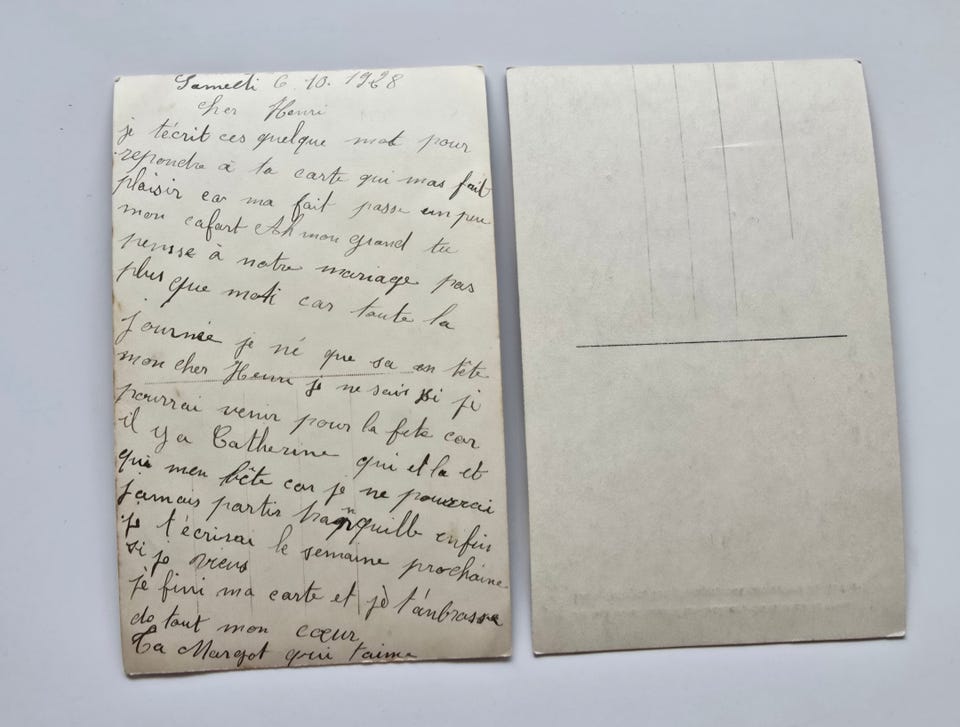 Samedi 6. 10. 1928
Cher Henri
je técrit ces quelque mot pour
repondre à ta carte qui mas fait
plaisir car ma fait passe un peu
mon cafart Ah mon grand tu
pensse à notre mariage pas
plus que moti car toute la
journée je né que sa en tête
mon cher Henri je ne sais si je
pourrai venir pour la fete car
il y a Catherine qui et la et
qui men bête car je ne pourrai
jamais partir tranquille enfin
je t'écrirai le semaine prochaine
si je viens
je fini ma carte et je t'anbrasse
de tout mon cœur
Ta Margot qui t'aime